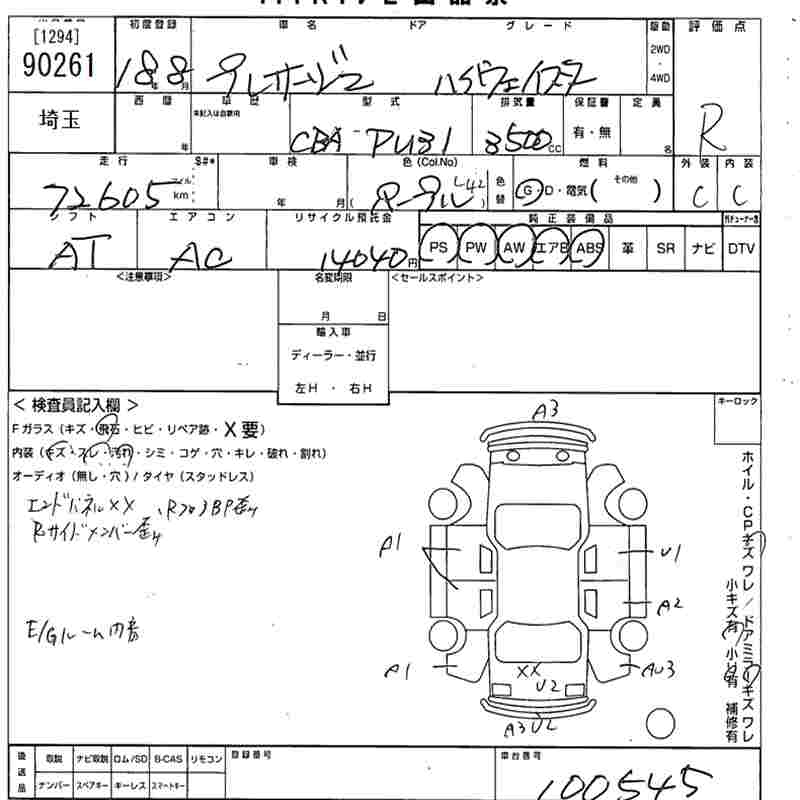 [1294]
90261
埼玉
初度登録
18年8月
車名 ドア グレード
プレオーゾン
ハイウェイスター
駆動
2WD
・
4WD
評価点
R
西暦
年
車歴
未記入は自家用
型式
CBA-PU31
排気量
3500cc
保証書
有・無
定員
名
走行 S#*
72605 マイル km
車検
年 月
色 (Col,No)
(パープル L42)
色替
燃料
G・D・電気 ( その他 )
外装 内装
C C
シフト
AT
エアコン
AC
リサイクル預託金
14040円
純正装備品
PS PW AW エアB ABS 革 SR ナビ DTV
<注意事項>
名変期限
月 日
輸入車
ディーラー・並行
左H ・ 右H
<セールスポイント>
< 検査員記入欄 >
Fガラス (キズ・飛石・ヒビ・リペア跡・X要)
内装 (キズ・スレ・汚れ・シミ・コゲ・穴・キレ・破れ・割れ)
オーディオ (無し・穴) / タイヤ (スタッドレス)
エンドパネルXX
Rサイドメンバー歪み
E/Gルーム内音
キーロック
A3
A1
U1
A2
A1
AU3
XX
U2
A3 U2
ホイル・CPキズ ワレ / ドアミラーキズ ワレ
補修有
後送品
取説 ナビ取説 ロム/SD B-CAS リモコン
ナンバー スペアキー キーレス スマートキー
登録番号
車台番号
100545